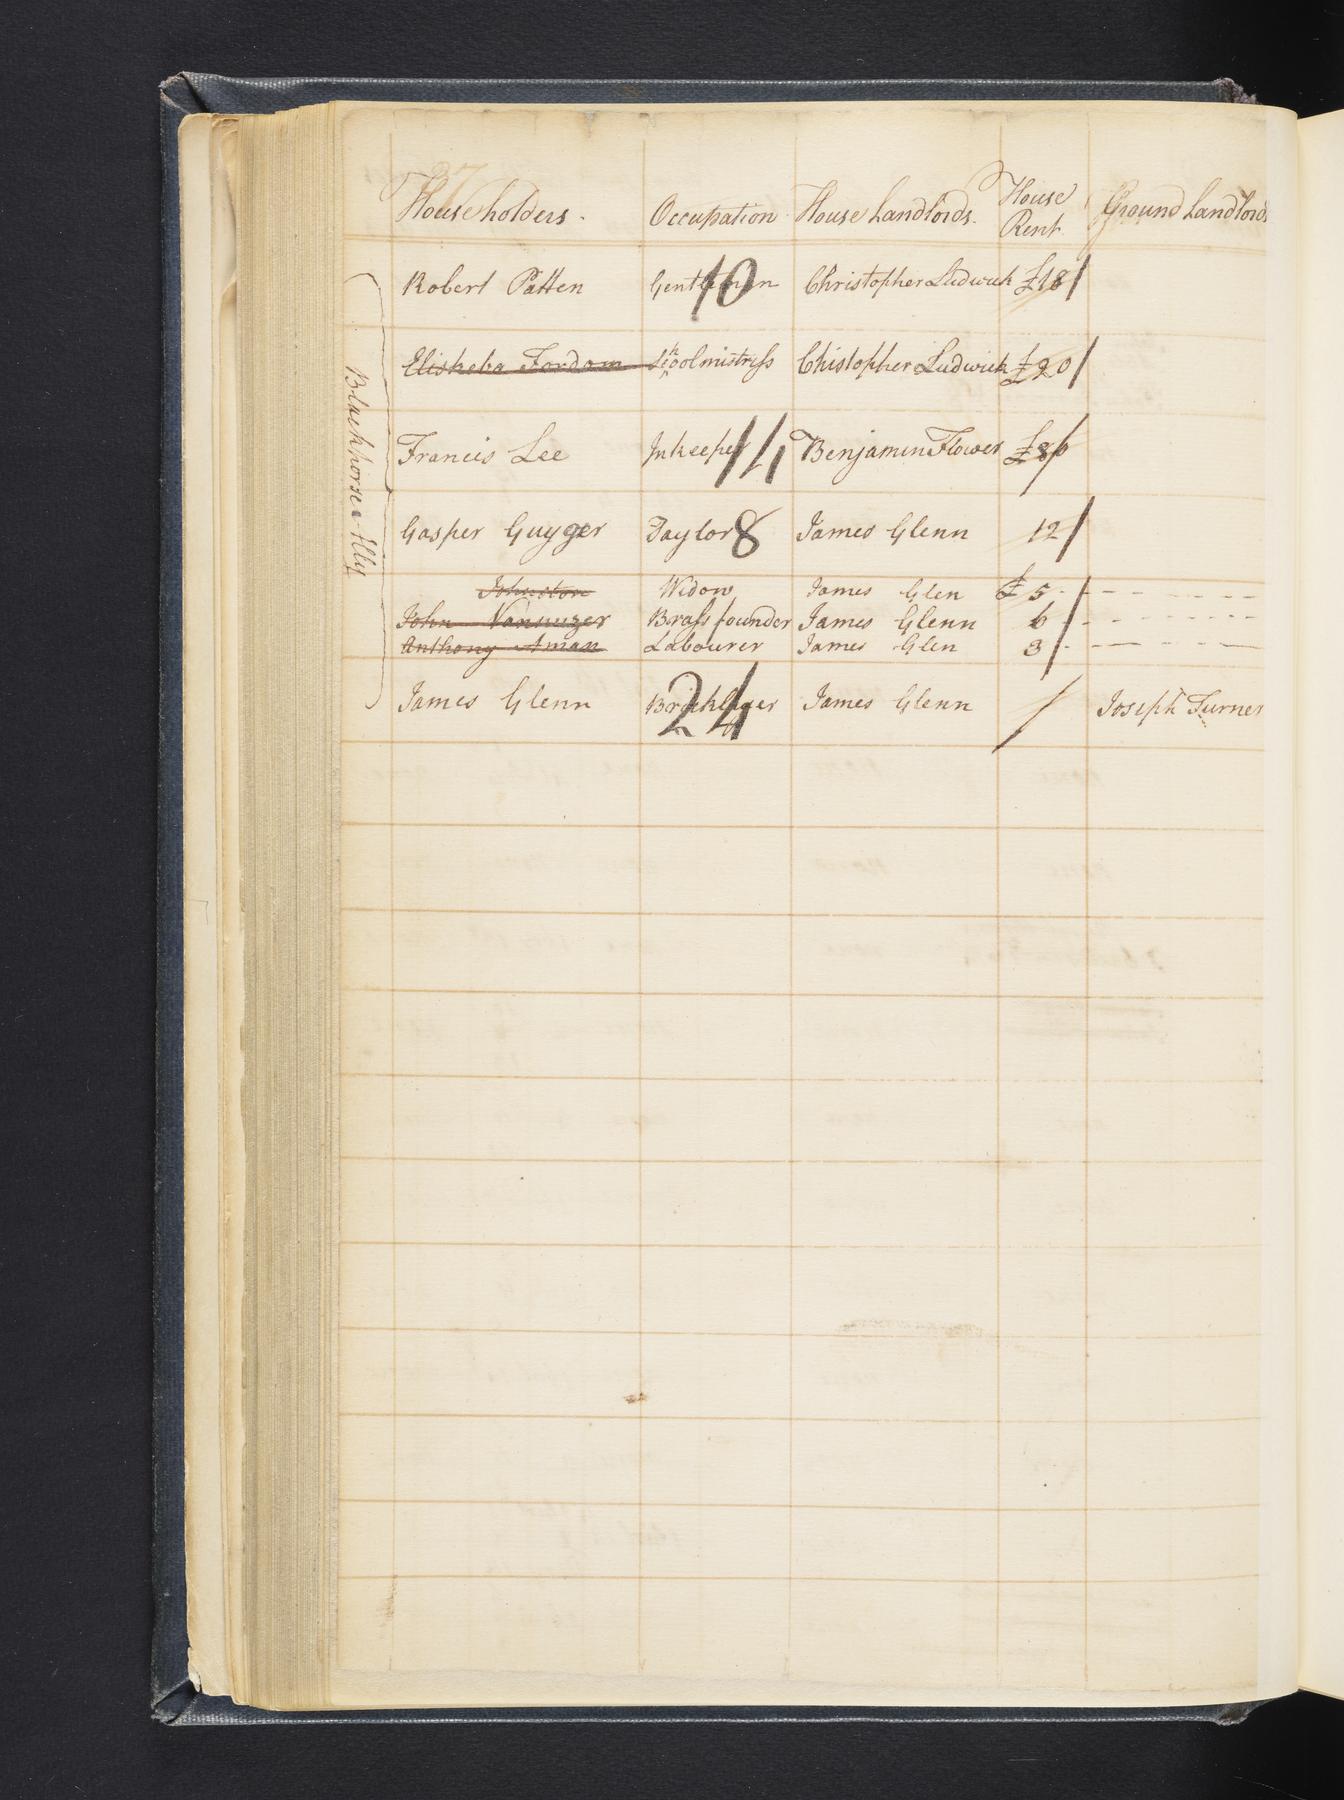 Householders. Occupation House Landlords. House Rent Ground Landlords
Robert Patten Gentleman 10 Christopher Ludwick £18/
Elisheba Fordam Schoolmistress Chistopher Ludwick £20/
Francis Lee Inkeeper 14 Benjamin Flower
Gasper Guyger Taylor 8 James Glenn 12/
Johnston Widow James Glen £5
John Vansuzer Brass founder James Glenn 6
Anthony Aman Labourer James Glen 3
James Glenn Bricklayer 24 James Glenn / Joseph Turner
Blackhorse Ally